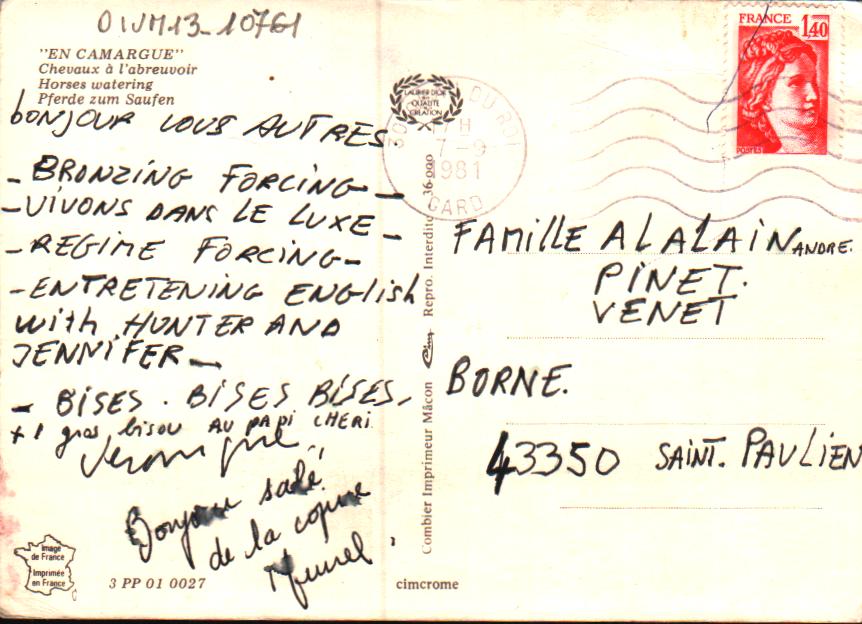 OIVM13-10761
"EN CAMARGUE"
Chevaux à l'abreuvoir
Horses watering
Pferde zum Saufen
bONJOUR VOUS AUTRES
- BRONZING FORCING -
- VIVONS DANS LE LUXE -
- REGIME FORCING -
- ENTRETENING ENGlish
with HUNTER AND
JENNIFER -
- BISES . BISES BISES.
+ 1 gros bisou AU PAPI CHERI.
Veronique
Bonjour salé
de la copine
Muriel.
Image
de France
Imprimée
en France
3 PP 01 0027
LAURIER D'OR
QUALITE
CREATION
DU ROI
17H
7-9
1981
GARD
Combier Imprimeur Mâcon Cim Repro. Interdite 36-000
cimcrome
FRANCE
1,40
POSTES
FAMILLE ALALAIN ANDRE.
PINET.
VENET
BORNE.
43350 SAINT. PAULIEN